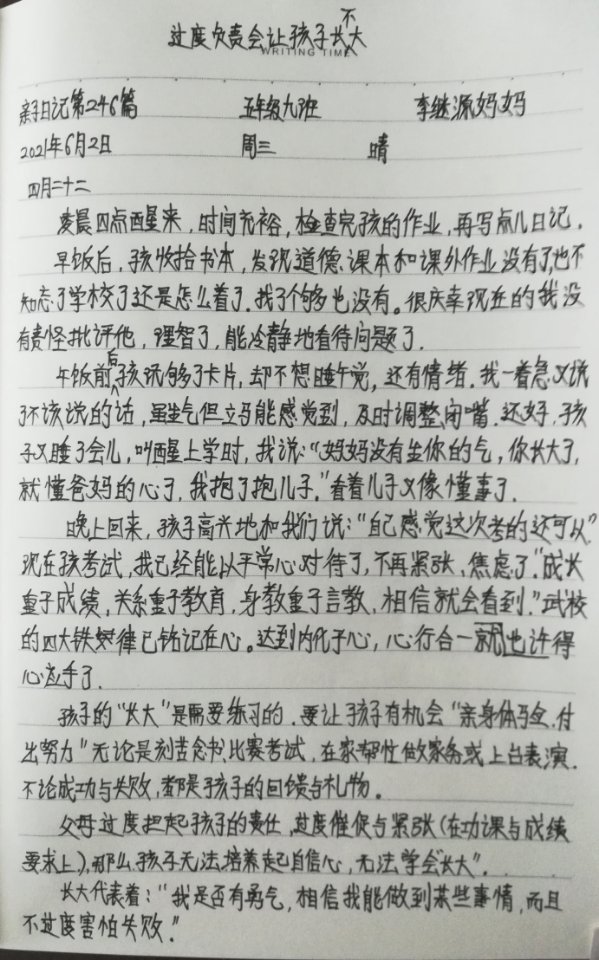 过度负责会让孩子长不大
WRITING TIME
亲子日记第246篇 五年级九班 李继源妈妈
2021年6月2日 周三 晴
四月二十二
凌晨四点醒来，时间充裕，检查完孩的作业，再写点儿日记。
早饭后，孩收拾书本，发现道德课本和课外作业没有了，也不
知忘了学校了还是怎么着了。找了个够也没有。很庆幸现在的我没
有责怪批评他，理智了，能冷静地看待问题了。
午饭前后孩玩够了卡片，却不想睡午觉，还有情绪。我一着急又说
了不该说的话，虽生气但立马能感觉到，及时调整，闭嘴。还好，孩
子又睡了会儿，叫醒上学时，我说：“妈妈没有生你的气，你长大了，
就懂爸妈的心了，我抱了抱儿子。”看着儿子又像懂事了。
晚上回来，孩子高兴地和我们说：“自己感觉这次考的还可以”。
现在孩考试，我已经能以平常心对待了，不再紧张、焦虑了。“成长
重于成绩，关系重于教育，身教重于言教，相信就会看到。”武校
的四大铁律已铭记在心。达到内化于心，心行合一就也许得
心应手了。
孩子的“长大”是需要练习的。要让孩子有机会“亲身体验，付
出努力”无论是刻苦念书，比赛考试，在家帮忙做家务或上台表演。
不论成功与失败，都是孩子的回馈与礼物。
父母过度担起孩子的责任，过度催促与紧张（在功课与成绩
要求上），那么孩子无法培养起自信心，无法学会“长大”。
长大代表着：“我是否有勇气，相信我能做到某些事情，而且
不过度害怕失败。”